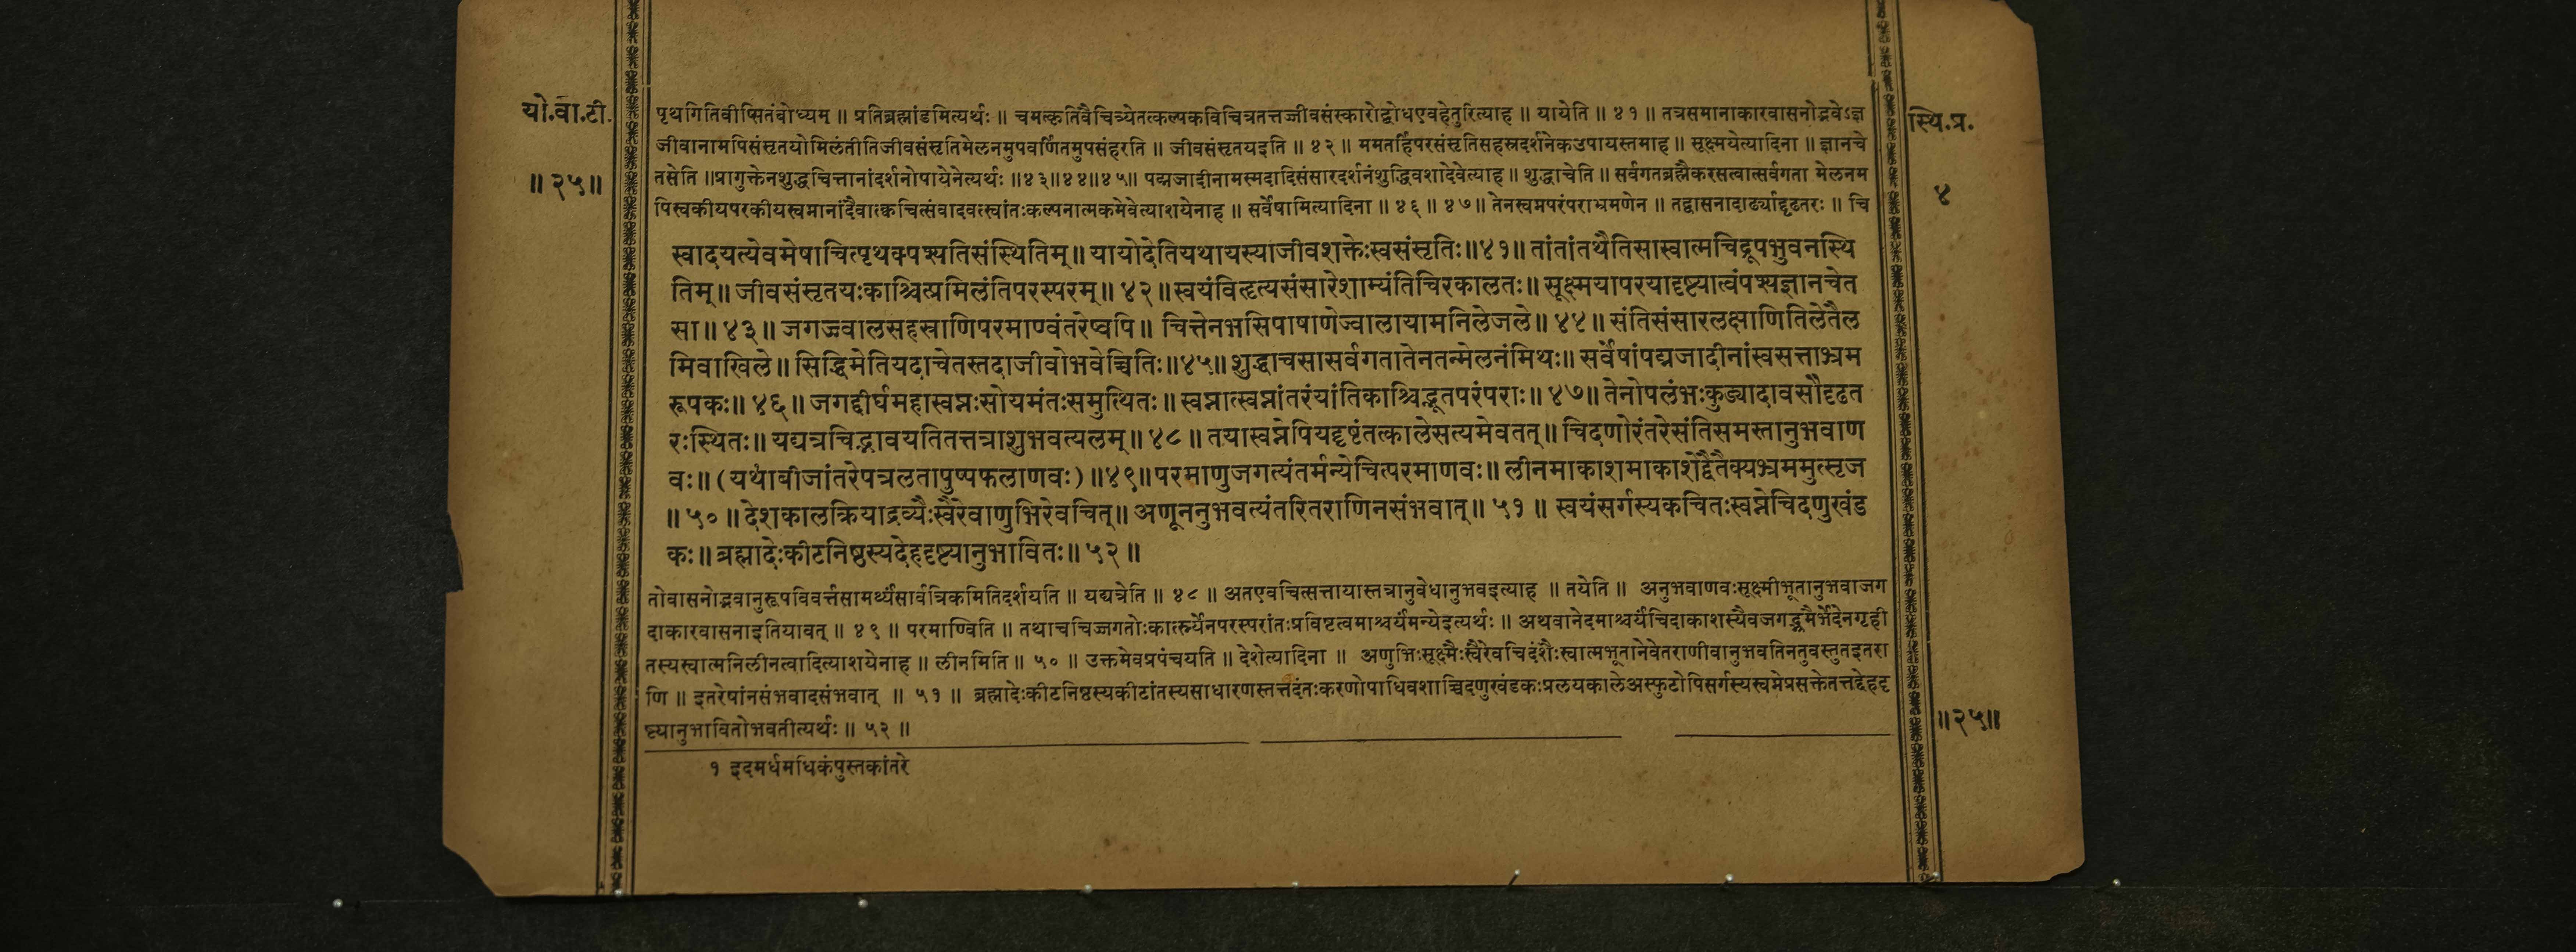 यो.वा.टी.
॥२५॥
पृथगितिवीप्सितंबोध्यम् ॥ प्रतिब्रह्मांडमित्यर्थः ॥ चमत्कृतिवैचित्र्येतत्कल्पकविचित्रतत्तज्जीवसंस्कारोद्बोधएवहेतुरित्याह ॥ यायेति ॥ ४१ ॥ तत्रसमानाकारवासनोद्भवेऽज्ञ
जीवानामपिसंसृतयोमिलंतीतिजीवसंसृतिमेलनमुपवर्णितमुपसंहरति ॥ जीवसंसृतयइति ॥ ४२ ॥ ममतर्हिपरसंसृतिसहस्रदर्शनेकउपायस्तमाह ॥ सूक्ष्मयेत्यादिना ॥ ज्ञानचे
तसेति ॥प्रागुक्तेनशुद्धचित्तानांदर्शनोपायेनेत्यर्थः ॥४३॥४४॥४५॥ पद्मजादीनामस्मदादिसंसारदर्शनंशुद्धिवशादेवेत्याह ॥ शुद्धाचेति ॥ सर्वगतब्रह्मैकरसत्वात्सर्वगता मेलनम
पिस्वकीयपरकीयस्वप्नानांदैवात्क्वचित्संवादवत्स्वांतःकल्पनात्मकमेवेत्याशयेनाह ॥ सर्वेषामित्यादिना ॥ ४६ ॥ ४७ ॥ तेनस्वप्नपरंपराभ्रमणेन ॥ तद्वासनादार्ढ्याद्दृढतरः ॥ चि
स्वादयत्येवमेषाचित्पृथक्पश्यतिसंस्थितिम् ॥ यायोदेतियथायस्याजीवशक्तेःस्वसंसृतिः॥४१॥ तांतांतथैतिसास्वात्मचिद्रूपभुवनस्थि
तिम् ॥ जीवसंसृतयःकाश्चित्प्रमिलंतिपरस्परम् ॥ ४२ ॥ स्वयंविहृत्यसंसारेशाम्यंतिचिरकालतः ॥ सूक्ष्मयापरयादृष्ट्यात्वंपश्यज्ञानचेत
सा ॥ ४३ ॥ जगज्जवालसहस्राणिपरमाण्वंतरेष्वपि ॥ चित्तेनभसिपाषाणेज्वालायामनिलेजले ॥ ४४ ॥ संतिसंसारलक्षाणितिलेतैल
मिवाखिले ॥ सिद्धिमेतियदाचेतस्तदाजीवोभवेच्चितिः॥४५॥ शुद्धाचसासर्वगतातेनतन्मेलनंमिथः॥ सर्वेषांपद्मजादीनांस्वसत्ताभ्रम
रूपकः॥ ४६ ॥ जगद्दीर्घमहास्वप्नःसोयमंतःसमुत्थितः ॥ स्वप्नात्स्वप्नांतरंयांतिकाश्चिद्भूतपरंपराः॥ ४७॥ तेनोपलंभःकुड्यादावसौदृढत
रःस्थितः ॥ यद्यत्रचिद्भावयतितत्तत्राशुभवत्यलम् ॥ ४८ ॥ तयास्वप्नेपियद्दृष्टंतत्कालेसत्यमेवतत् ॥ चिदणोरंतरेसंतिसमस्तानुभवाण
वः ॥ (यथाबीजांतरेपत्रलतापुष्पफलाणवः) ॥४९॥ परमाणुजगत्यंतर्मन्येचित्परमाणवः ॥ लीनमाकाशमाकाशेद्वैतैक्यभ्रममुत्सृज
॥ ५० ॥ देशकालक्रियाद्रव्यैःस्वैरेवाणुभिरेवचित् ॥ अणूननुभवत्यंतरितराणिनसंभवात् ॥ ५१ ॥ स्वयंसर्गस्यकचितःस्वप्नेचिदणुखंड
कः ॥ ब्रह्मादेःकीटनिष्ठस्यदेहदृष्ट्यानुभावितः ॥ ५२ ॥
तोवासनोद्भवानुरूपविवर्त्तसामर्थ्यंसार्वत्रिकमितिदर्शयति ॥ यद्यत्रेति ॥ ४८ ॥ अतएवचित्सत्तायास्तत्रानुवेधानुभवइत्याह ॥ तयेति ॥ अनुभवाणवःसूक्ष्मीभूतानुभवाजग
दाकारवासनाइतियावत् ॥ ४९ ॥ परमाण्विति ॥ तथाचचिज्जगतोःकार्त्स्न्येनपरस्परांतःप्रविष्टत्वमाश्चर्यंमन्येइत्यर्थः ॥ अथवानेदमाश्चर्यंचिदाकाशस्यैवजगद्भ्रमैर्भेदेनगृही
तस्यस्वात्मनिलीनत्वादित्याशयेनाह ॥ लीनमिति ॥ ५० ॥ उक्तमेवप्रपंचयति ॥ देशेत्यादिना ॥ अणुभिःसूक्ष्मैःस्वैरेवचिदंशैःस्वात्मभूतानेवेतराणीवानुभवतिनतुवस्तुतइतरा
णि ॥ इतरेषांनसंभवादसंभवात् ॥ ५१ ॥ ब्रह्मादेःकीटनिष्ठस्यकीटांतस्यसाधारणस्तत्तदंतःकरणोपाधिवशाच्चिदणुखंडकःप्रलयकालेअस्फुटोपिसर्गस्यस्वप्नेप्रसक्तेतत्तद्देहदृ
ष्ट्यानुभावितोभवतीत्यर्थः ॥ ५२ ॥
१ इदमर्धमधिकंपुस्तकांतरे
स्थि.प्र.
४
॥२५॥